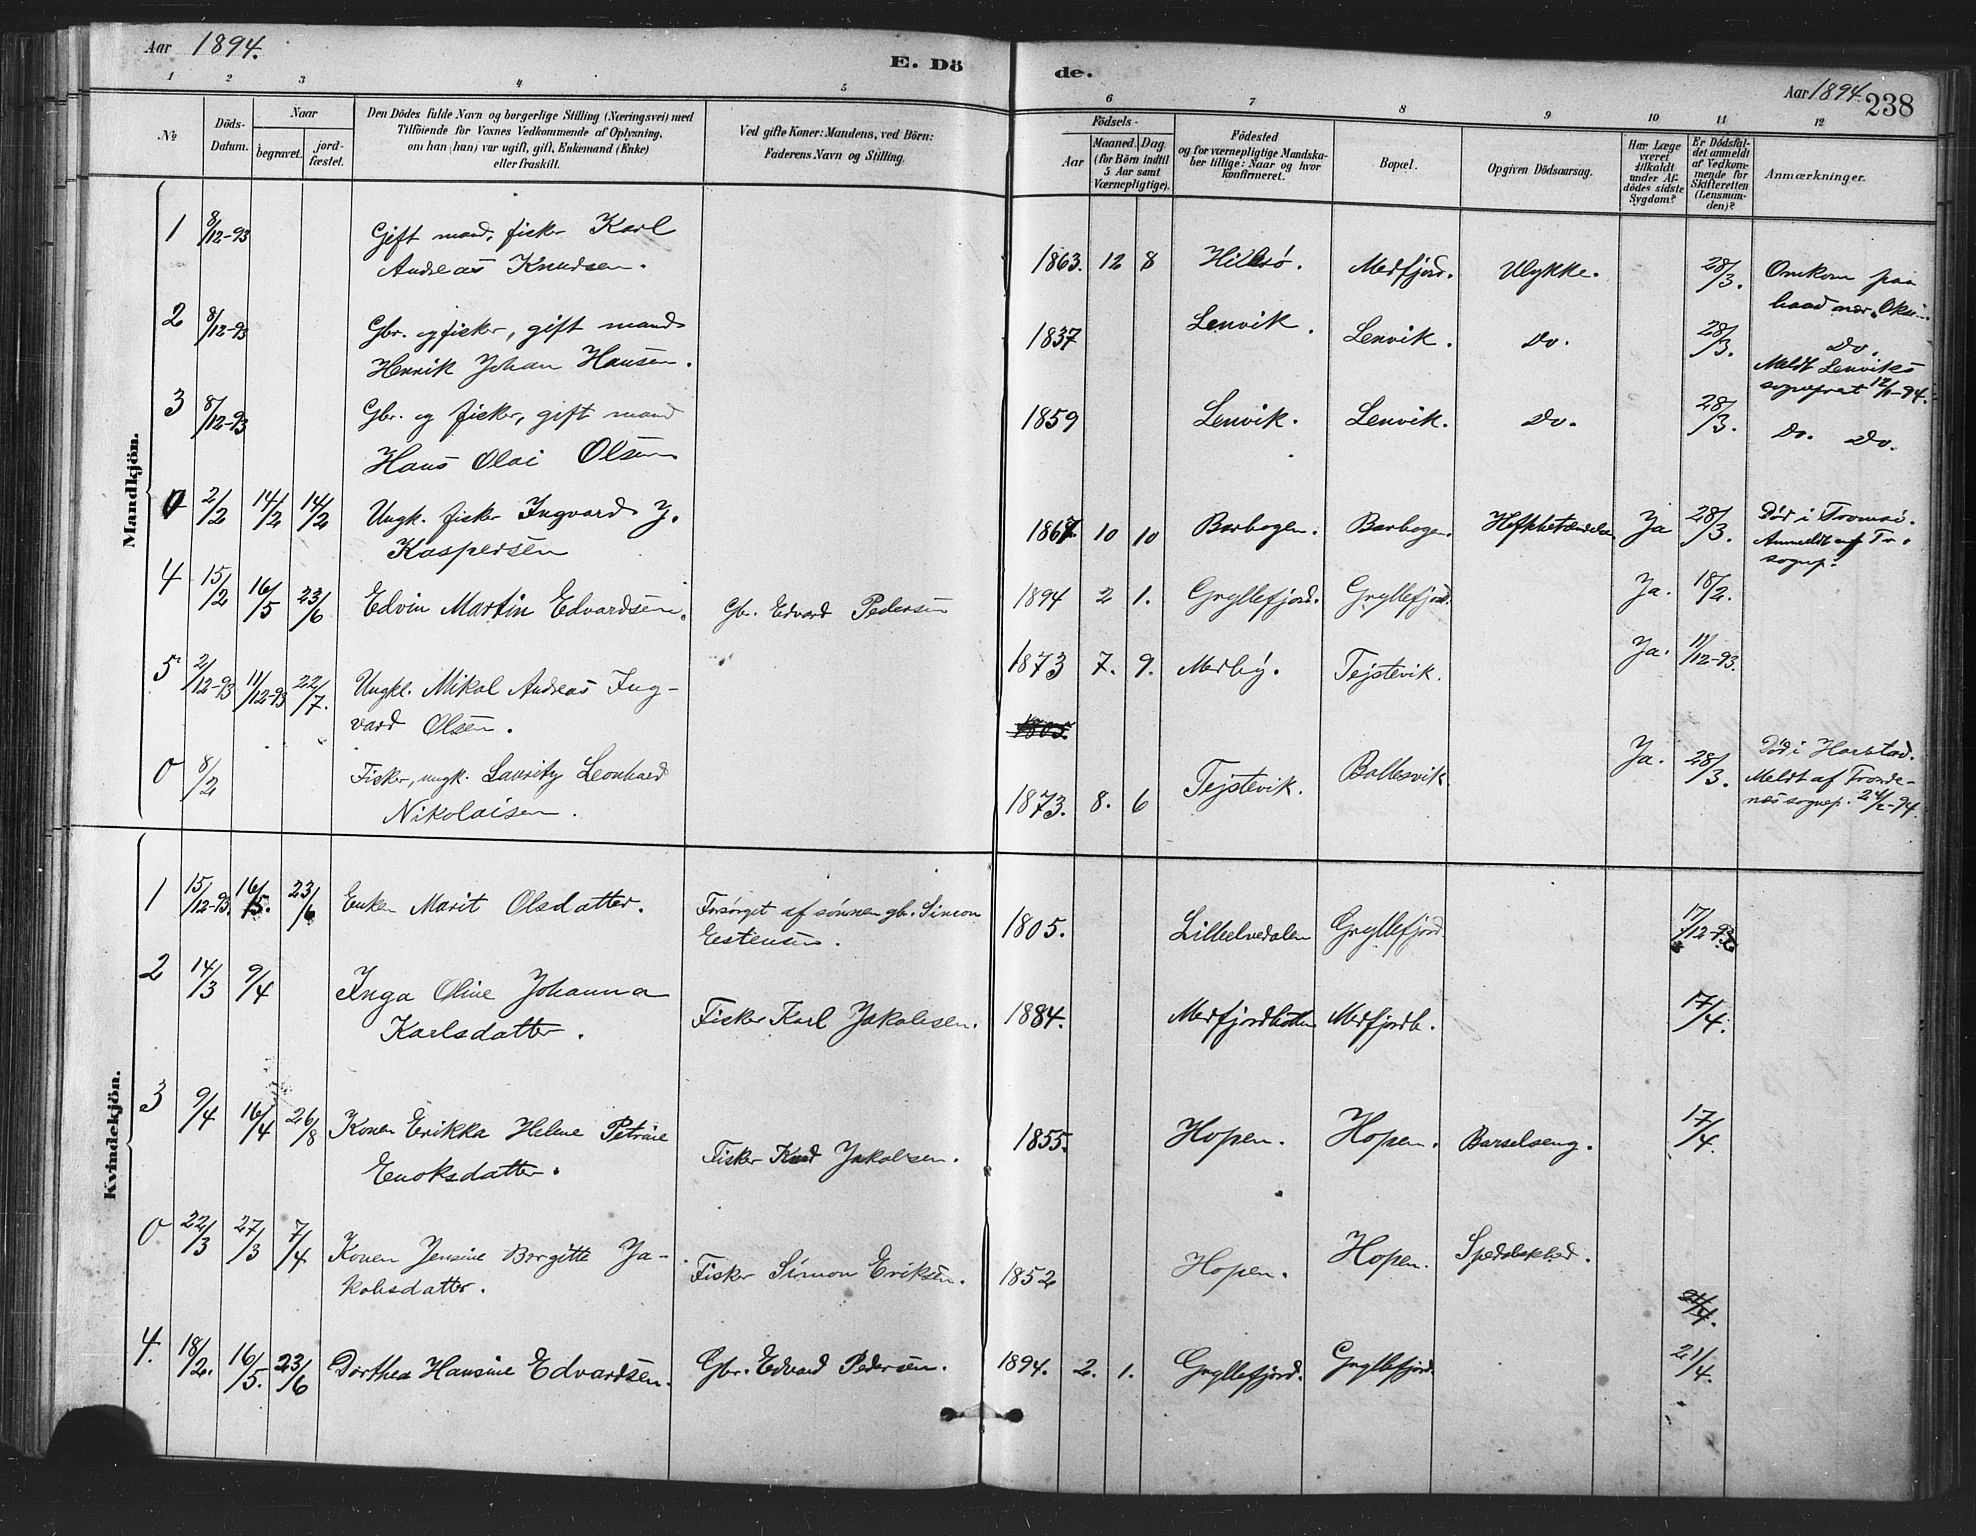 Aar 1894.
E. Dö
de.
Aar 1894.
238
1 2 3 4 5 6 7 8 9 10 11 12
No
Döds-
Datum.
Naar
begravet.
jord-
fæstet.
Den Dödes fulde Navn og borgerlige Stilling (Næringsvei) med
Tilföiende for Voxnes Vedkommende af Oplysning,
om han (hun) var ugift, gift, Enkemand (Enke)
eller fraskilt.
Ved gifte Koner: Mandens, ved Börn:
Faderens Navn og Stilling.
Födsels-
Aar
Maaned. Dag.
(for Börn indtil
5 Aar samt
Værnepligtige).
Födested
og for værnepligtige Mandska-
ber tillige: Naar og hvor
konfirmeret.
Bopæl.
Opgiven Dödsaarsag.
Har Læge
været
tilkaldt
under Af-
dödes sidste
Sygdom?
Er Dödsfal-
det anmeldt
af Vedkom-
mende for
Skifteretten
(Lensman-
den)?
Anmærkninger.
Mandkjön.
1 8/12-93 Gift mand, fisker Karl
Andreas Knudsen. 1863. 12 8 Hillesø. Medfjord. Ulykke. 28/3. Omkom paa
2 8/12-93 Gbr. og fisker, gift mand
Henrik Johan Hansen. 1837 Lenvik. Lenvik. Do. 28/3. Do.
Meldt Lenviks
sogneprest 12/1-94.
3 8/12-93 Gbr. og fisker, gift mand
Hans Olai Olsen 1859 Lenvik. Lenvik. Do. 28/3. Do. Do.
0 2/2 14/2 14/2 Ungk. fisker Ingvard J.
Kaspersen 10 10 Barbogen. Barbogen. Ja 28/3. Død i Tromsø.
Anmeldt af Tr.
sognep.
4 15/2 16/5 23/6 Edvin Martin Edvardsen. Gbr. Edvard Pedersen 1894 2 1. Gryllefjord. Gryllefjord. Ja. 18/2.
5 2/12-93 11/12-93 22/7. Ungk. Mikal Andreas Ing-
vard Olsen. 1873 7. 9. Medby. Tejstevik. Ja. 11/12-93.
1805.
0 8/2 Fisker, ungk. Lauritz Leonhard
Nikolaisen. 1873. 8. 6 Tejstevik. Ballesvik. Ja. 28/3. Død i Harstad.
Meldt af Tronde-
næs sognep. 24/2-94.
Kvindekjön.
1 15/12-93. 16/5. 23/6 Enken Marit Olsdatter. Forsørget af sønnen gbr. Simon
Estensen. 1805. Lillelvedalen Gryllefjord. 17/12-93.
2 14/3 9/4 Inga Oline Johanna
Karlsdatter. Fisker Karl Jakobsen. 1884. Medfjordbotten Medfjordb. 17/4.
3 9/4 16/4 26/8 Konen Erikka Helene Petrine
Enoksdatter. Fisker Jakobsen. 1855. Hopen. Hopen. Barselseng. 17/4.
0 22/3 27/3 7/4 Konen Jensine Birgitte Ja-
kobsdatter. Fisker Simon Eriksen. 1852 Hopen. Hopen. Spedalskhed.
21/4.
4. 18/2. 16/5. 23/6 Dorthea Hansine Edvardsen. Gbr. Edvard Pedersen. 1894. 2. 1. Gryllefjord. Gryllefjord. 21/4.